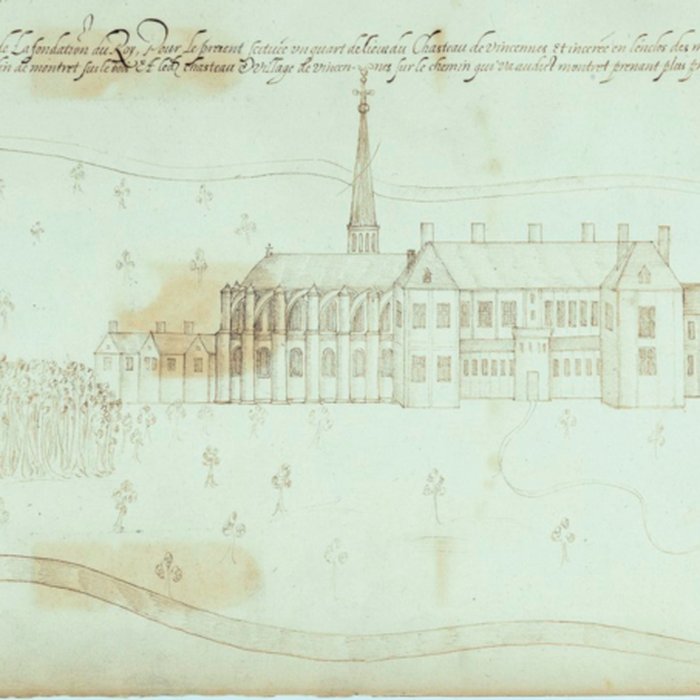 de La fondation du Roy, Pour Le present scituée un quart de lieue du Chasteau de Vincennes Et incerée en lenclos des
de montret sur le Et led chasteau & Village de Vincennes sur le chemin qui va audict montret prenant plus